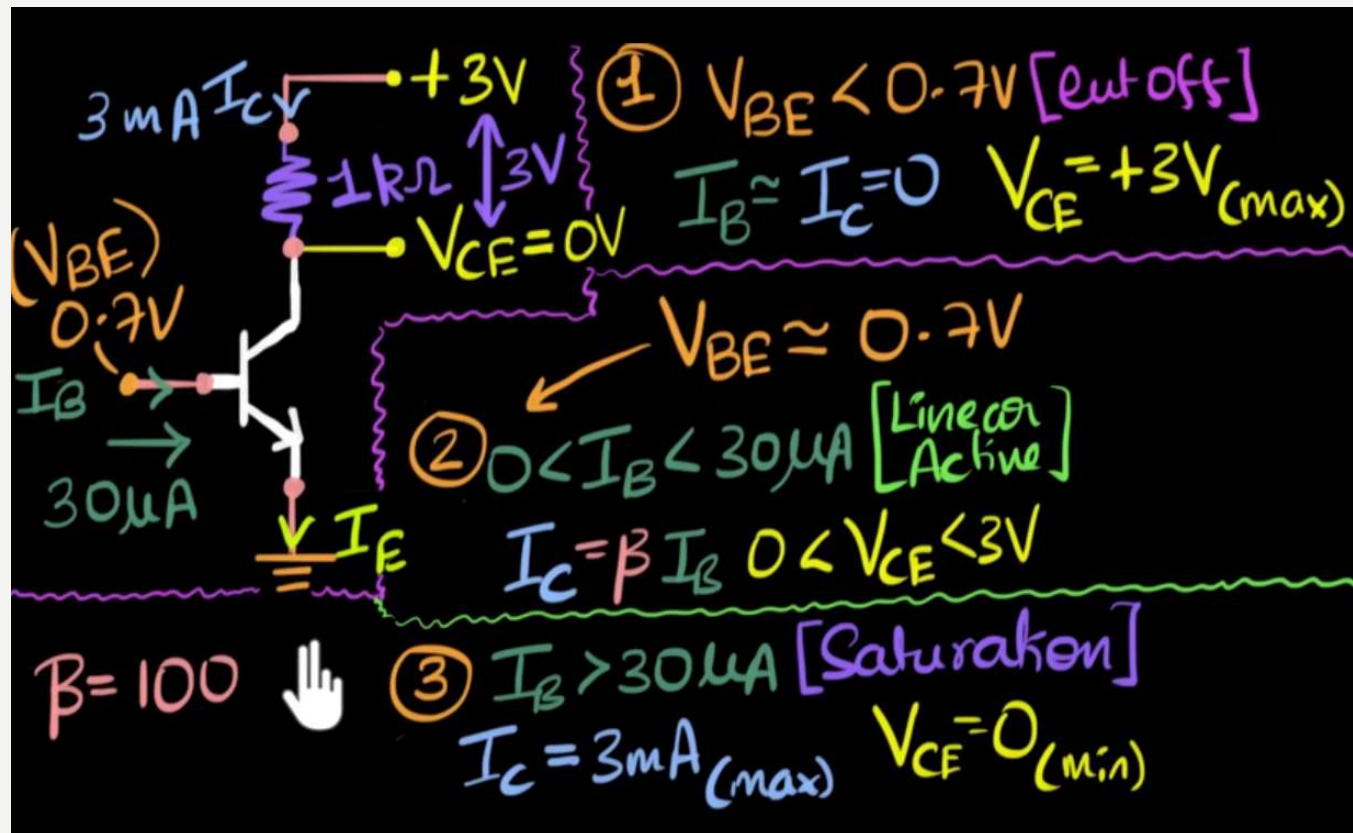 3mA I_C
+3V
1kΩ
3V
V_CE = 0V
(V_BE)
0.7V
I_B
30μA
I_E
β = 100
① V_BE < 0.7V [Cut off]
I_B ≃ I_C = 0 V_CE = +3V (max)
V_BE ≃ 0.7V
② 0 < I_B < 30μA [Linear Active]
I_C = β I_B 0 < V_CE < 3V
③ I_B > 30μA [Saturation]
I_C = 3mA (max) V_CE = 0 (min)